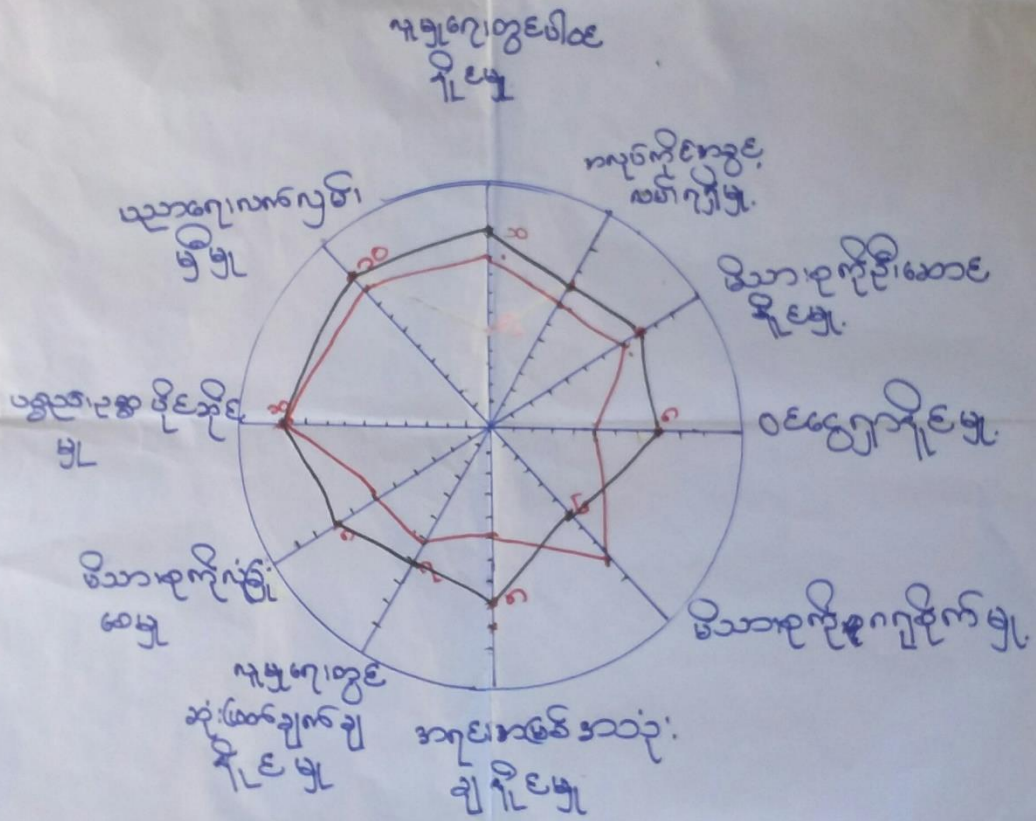 လူမှုရေးတွင်ပါဝင်
နိုင်မှု
အလုပ်ကိုင်အခွင့်
လမ်းရှိမှု
မိသားစုကိုဦးဆောင်
နိုင်မှု
ဝင်ငွေရှာနိုင်မှု
မိသားစုကိုဂရုစိုက်မှု
အရင်းအမြစ်အသုံး
ချနိုင်မှု
လူမှုရေးတွင်
ဆုံးဖြတ်ချက်ချ
နိုင်မှု
မိသားစုကိုလုံခြုံ
စေမှု
ပစ္စည်းဥစ္စာပိုင်ဆိုင်
မှု
ပညာရေးလက်လှမ်း
မှီမှု